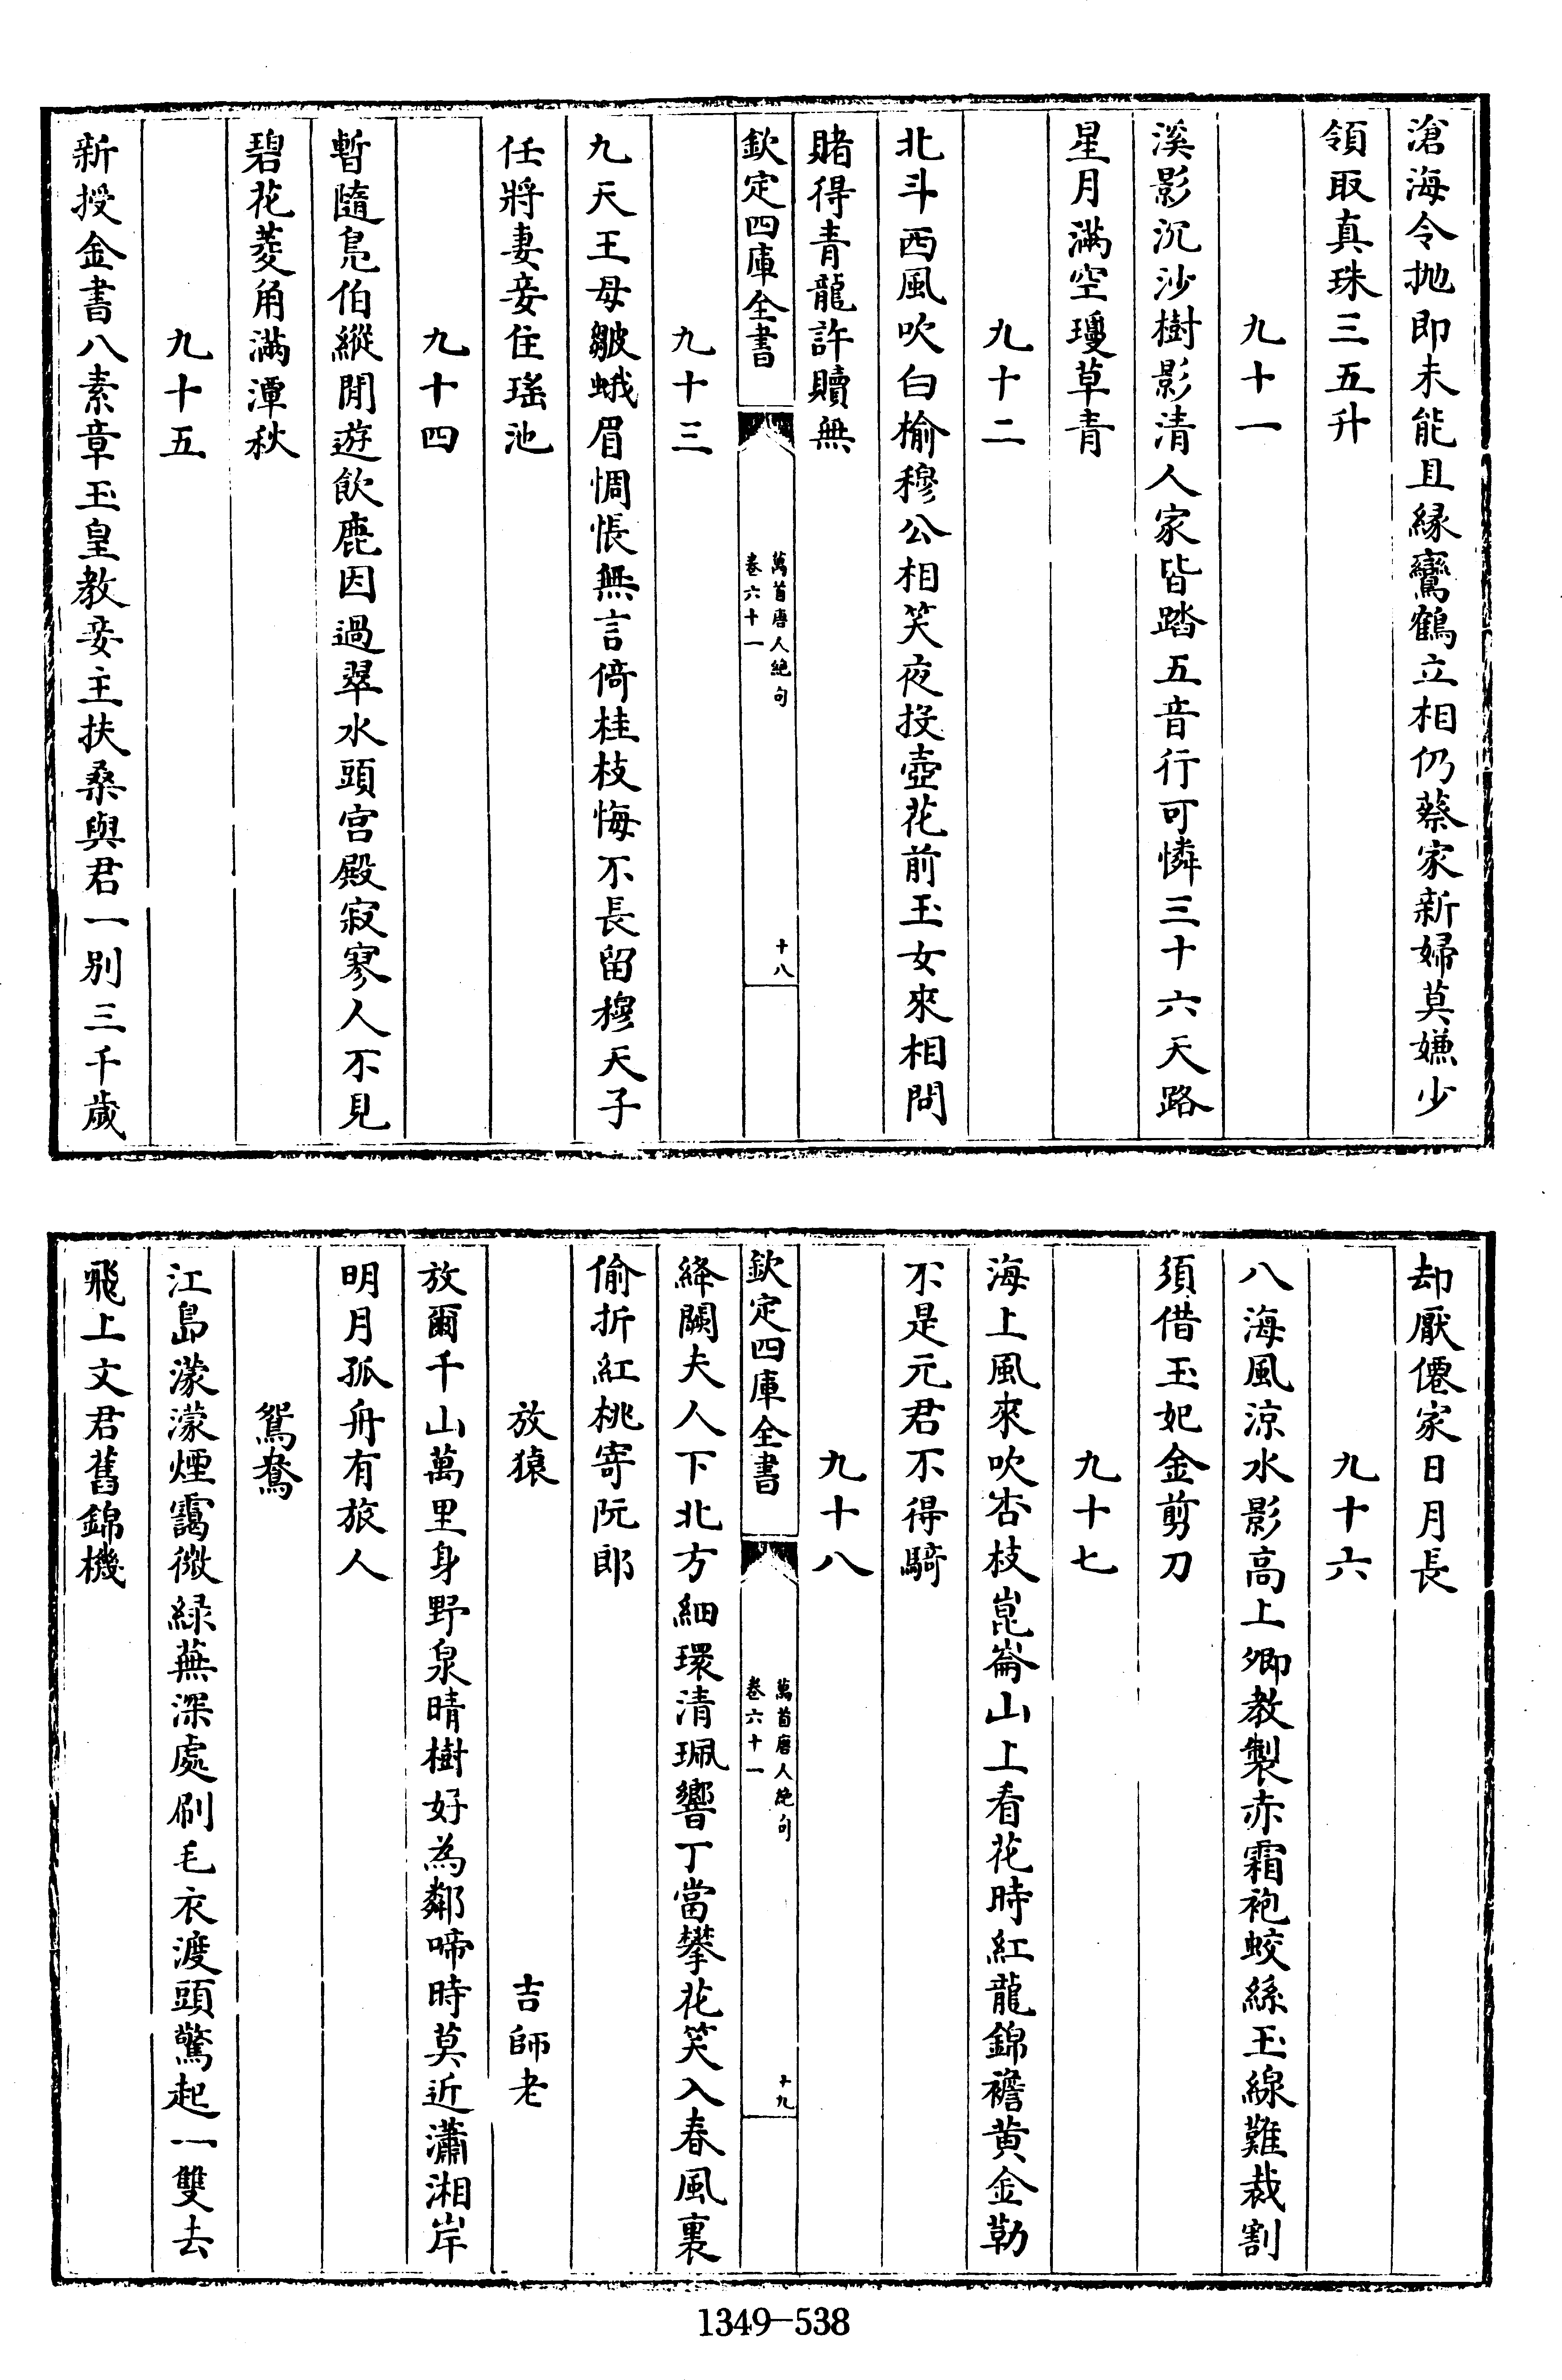 滄海令抛即未能且緣鸞鶴立相仍蔡家新婦莫嫌少
領取真珠三五升
九十一
溪影沉沙樹影清人家皆踏五音行可憐三十六天路
星月滿空瓊草青
九十二
北斗西風吹白榆穆公相笑夜投壺花前玉女來相問
賭得青龍許贖無
欽定四庫全書
萬首唐人絶句
卷六十一
十八
九十三
九天王母皺蛾眉惆悵無言倚桂枝悔不長留穆天子
任將妻妾住瑤池
九十四
暫隨鳧伯縱閒遊飲鹿因過翠水頭宮殿寂寥人不見
碧花菱角滿潭秋
九十五
新授金書八素章玉皇教妾主扶桑與君一別三千歲
却厭僊家日月長
九十六
八海風涼水影高上卿教製赤霜袍蛟絲玉線難裁割
須借玉妃金剪刀
九十七
海上風來吹杏枝崑崙山上看花時紅龍錦襜黃金勒
不是元君不得騎
九十八
欽定四庫全書
萬首唐人絶句
卷六十一
十九
絳闕夫人下北方細環清珮響丁當攀花笑入春風裏
偷折紅桃寄阮郎
放猿
吉師老
放爾千山萬里身野泉晴樹好為鄰啼時莫近瀟湘岸
明月孤舟有旅人
鴛鴦
江島濛濛煙靄微緑蕪深處刷毛衣渡頭驚起一雙去
飛上文君舊錦機
1349-538